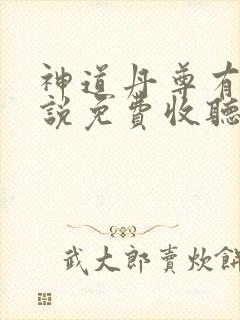 神道丹尊有
說免費收聽
武大郎賣炊餅